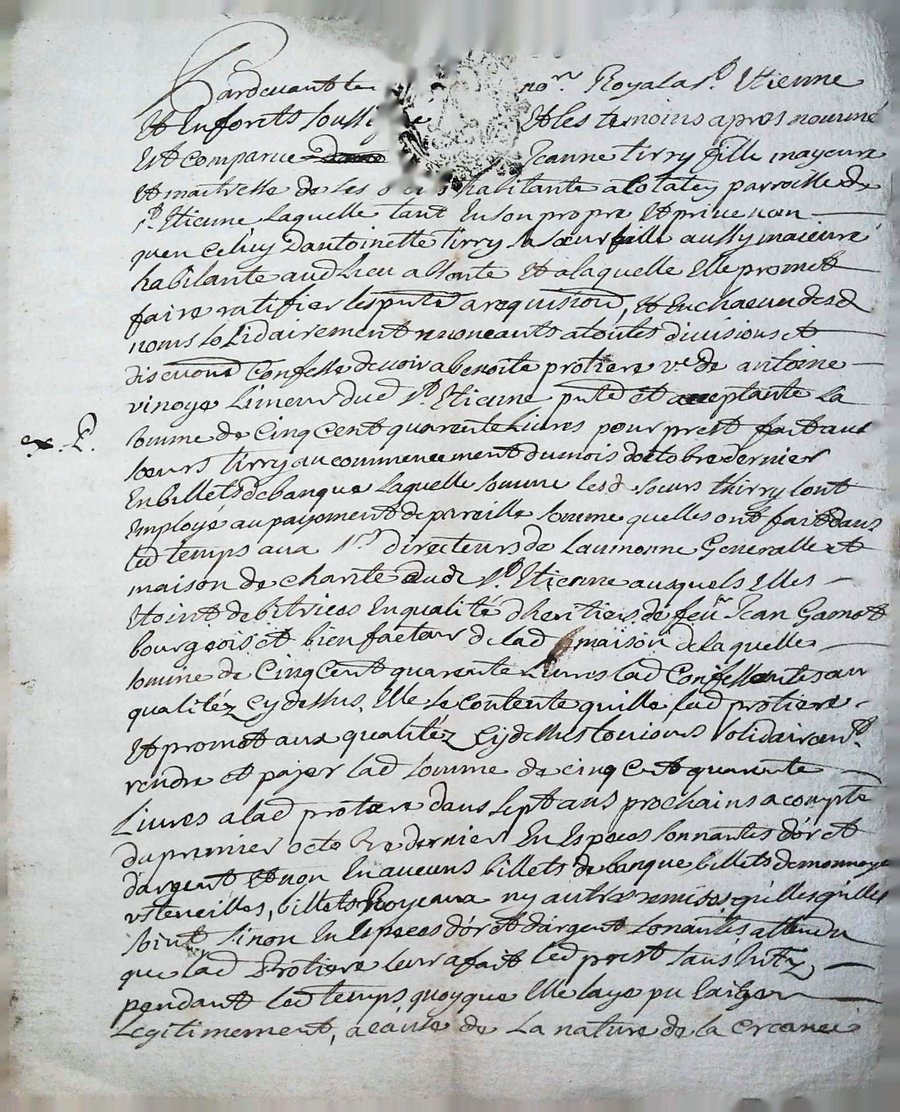 Pardevant le no.re Royal a St. Etienne
Et Enforets Soussigne Et les temoins apres nommé
Est comparue Jeanne tirry fille mayeure
et maitresse de ses habitante a lotatey parroisse de
St. Etienne laquelle tant En son propre Et privé nom
quen celuy D'antoinette tirry sa soeur fille aussy maieure
habitante aud Lieu absente Et a laquelle Elle promet
faire ratiffier les pntes a requisition, et en chacun desd
noms solidairement renonceants a toutes divisions et
discution Confesse devoir a benoite protiere ve de antoine
vinoye Limeur dud St. Etienne pnte et acceptante La
somme de Cinq Cent quarente Livres pour prest fait aux
soeurs tirry au commencement du mois doctobre dernier
En billets de banque laquelle somme lesd soeurs thirry sont
Employé au payement de pareille somme quelles ont fait dans
led temps aux Srs directeurs de Laumonne Generalle et
maison de charité dud St. Etienne ausquels Elles
Etoint debitrices En qualité d'heritieres de feu Sr Jean Gamet
bourgeois et bien facteur de lad maison de laquelle
somme de Cinq Cent quarente Livres lad Confessante aux
qualitéz cy dessus, Elle se contente quitte lad protiere
Et promet aux qualitéz cy dessus tousiours Solidairemt.
rendre et pajer lad somme de cinq cent quarente
Livres a lad protiere dans sept ans prochains a compte
du premier octobre dernier En Especes sonnantes d'or et
d'argent Et non En aucuns billets de banque, billets de monnoye
ustencilles, billets Royeaux ny autres remises qu'elles qu'elles
soint sinon En Especes d'or et d'argent sonantes attendu
que lad Protiere leur a fait led prest sans
pendant led temps quoyque Elle laye pu Exiger
Legitimement, a cause de La nature de la creance
ex. P.